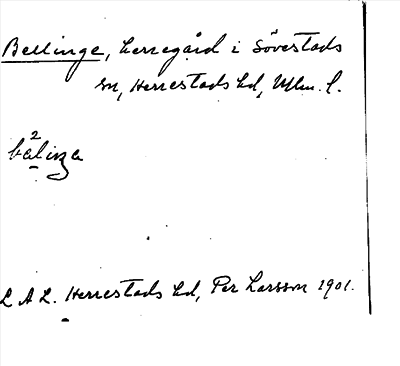 Bellinge, herregård i Sövestads
sn, Herrestads hd, Mlm. l.
bä²liŋa
L A L. Herrestads hd, Per Larsson 1901.